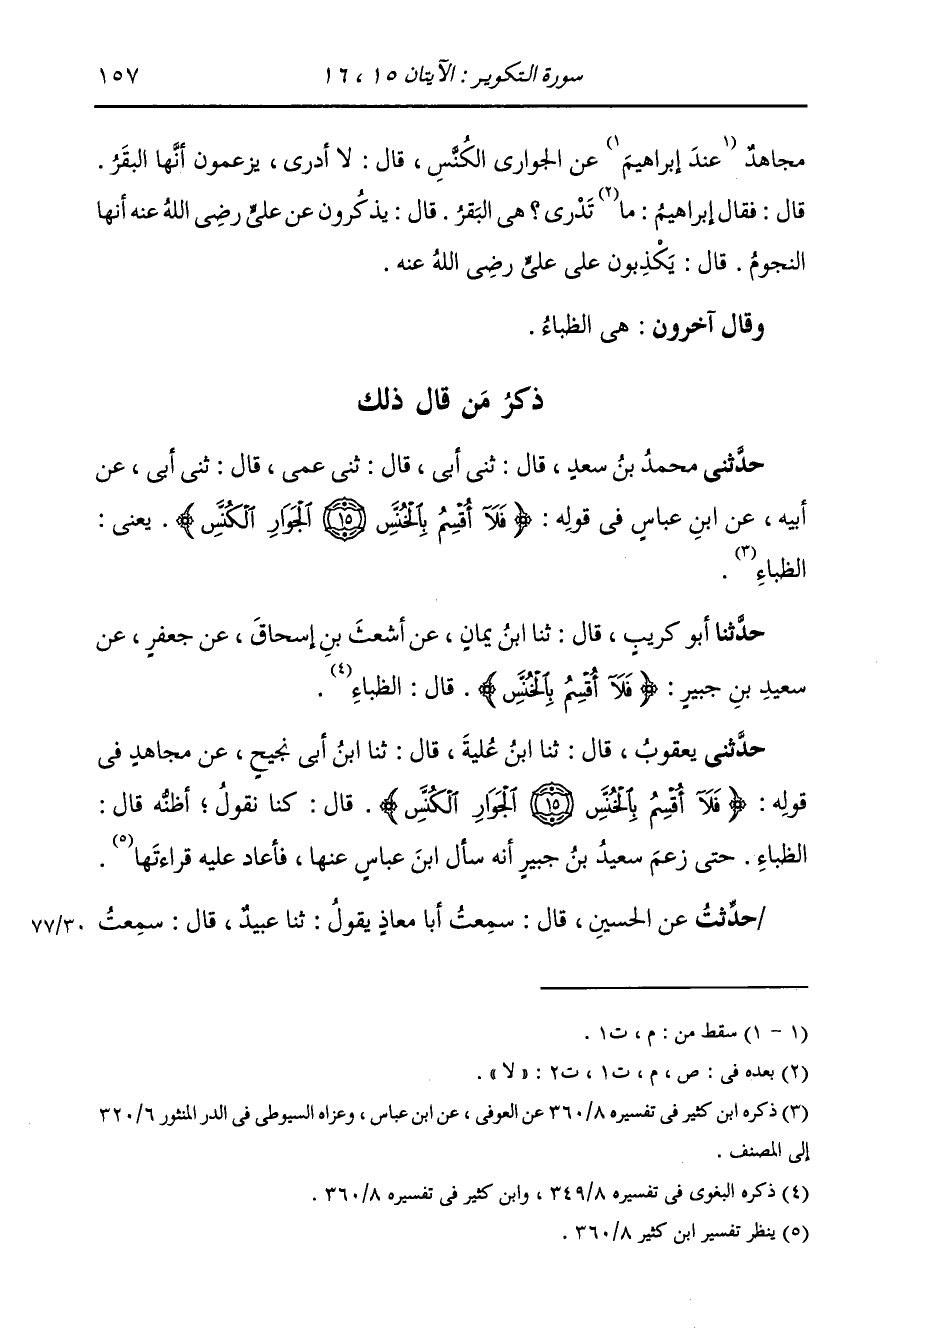 سورة التكوير : الآيتان ١٥ ، ١٦ ١٥٧
مجاهدٌ (١ عندَ إبراهيمَ ١) عن الجوارى الكُنَّسِ ، قال : لا أدرى ، يزعمون أنَّها البقَرُ .
قال : فقال إبراهيمُ : ما(٢) تَدْرى ؟ هى البَقرُ . قال : يذكُرون عن علىٍّ رضِى اللهُ عنه أنها
النجومُ . قال : يَكْذِبون على علىٍّ رضِى اللهُ عنه .
وقال آخرون : هى الظباءُ .
ذكرُ مَن قال ذلك
حدَّثنى محمدُ بنُ سعدٍ ، قال : ثنى أبى ، قال : ثنى عمى ، قال : ثنى أبى ، عن
أبيه ، عن ابنِ عباسٍ فى قولِه : ﴿ فَلَآ أُقْسِمُ بِٱلْخُنَّسِ ١٥ ٱلْجَوَارِ ٱلْكُنَّسِ ﴾ . يعنى :
الظباءِ(٣) .
حدَّثنا أبو كريبٍ ، قال : ثنا ابنُ يمانٍ ، عن أشعثَ بنِ إسحاقَ ، عن جعفرٍ ، عن
سعيدِ بنِ جبيرٍ : ﴿ فَلَآ أُقْسِمُ بِٱلْخُنَّسِ ﴾ . قال : الظباءِ(٤) .
حدَّثنى يعقوبُ ، قال : ثنا ابنُ عُليةَ ، قال : ثنا ابنُ أبى نجيحٍ ، عن مجاهدٍ فى
قولِه : ﴿ فَلَآ أُقْسِمُ بِٱلْخُنَّسِ ١٥ ٱلْجَوَارِ ٱلْكُنَّسِ ﴾ . قال : كنا نقولُ ؛ أظنُّه قال :
الظباءِ . حتى زعمَ سعيدُ بنُ جبيرٍ أنه سأل ابنَ عباسٍ عنها ، فأعاد عليه قراءتَها(٥) .
/حدِّثتُ عن الحسينِ ، قال : سمِعتُ أبا معاذٍ يقولُ : ثنا عبيدٌ ، قال : سمِعتُ ٧٧/٣٠
(١ - ١) سقط من : م ، ت١ .
(٢) بعده فى : ص ، م ، ت١ ، ت٢ : « لا » .
(٣) ذكره ابن كثير فى تفسيره ٣٦٠/٨ عن العوفى ، عن ابن عباس ، وعزاه السيوطى فى الدر المنثور ٣٢٠/٦
إلى المصنف .
(٤) ذكره البغوى فى تفسيره ٣٤٩/٨ ، وابن كثير فى تفسيره ٣٦٠/٨ .
(٥) ينظر تفسير ابن كثير ٣٦٠/٨ .